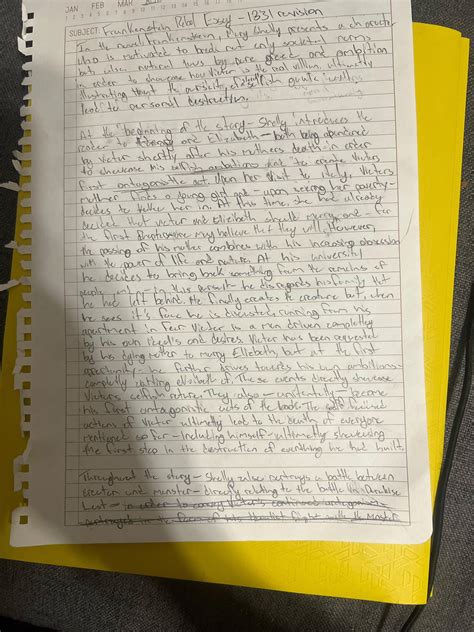 JAN FEB MAR
SUBJECT: Frankenstein Pshal Essay - 1331 revision
In the novel Frankenstein, Mary Shelly presents a character
who is motivated to break not only societal norms
but also natural laws by pure greed and ambition
in order to showcase how Victor is the real villain ultimately
illustrating that the pursuit of selfish goals will
lead to personal destruction.
At the beginning of the story - Shelly introduces the
reader to and Elizabeth - both being abandoned
by Victor shortly after his mothers death in order
to showcase his selfish ambitions and to create Victors
first antagonistic act upon her visit to Italy, Victors
mother finds a young girl and - upon seeing her poverty -
decides to take her in. At this time, she had already
decided that victor and elizibeth should marry and - for
the first may believe that they will. However,
the passing of his mother combines with his increasing obsession
with the power of life and nature. At his university
he decides to bring back something from the remains of
people, in this pursuit he disregards his family that
he had left behind. He finally creates the creature but, when
he sees it's face he is discusted, running from his
apartment in fear. Victor is a man driven completley
by his own and desires. Victor has been requested
by his dying mother to marry Elizabeth, but at the first
oportunity - he further drives towards his own ambitions -
completly cutting elizabeth off. These events directly showcase
Victors selfish nature. They also - - become
his first antagonistic acts of the book. The
actions of Victor ultimatly lead to the death of everyone
mentioned so far - including himself - ultimatly showcasing
the first step in the destruction of everything he had built.
Throughout the story - Shelly also portrays a battle between
creation and monster - directly relating to the battle in Paradise
Lost - in order to convey Victor's continued antagonistic
portrayed in the of his with the Monster